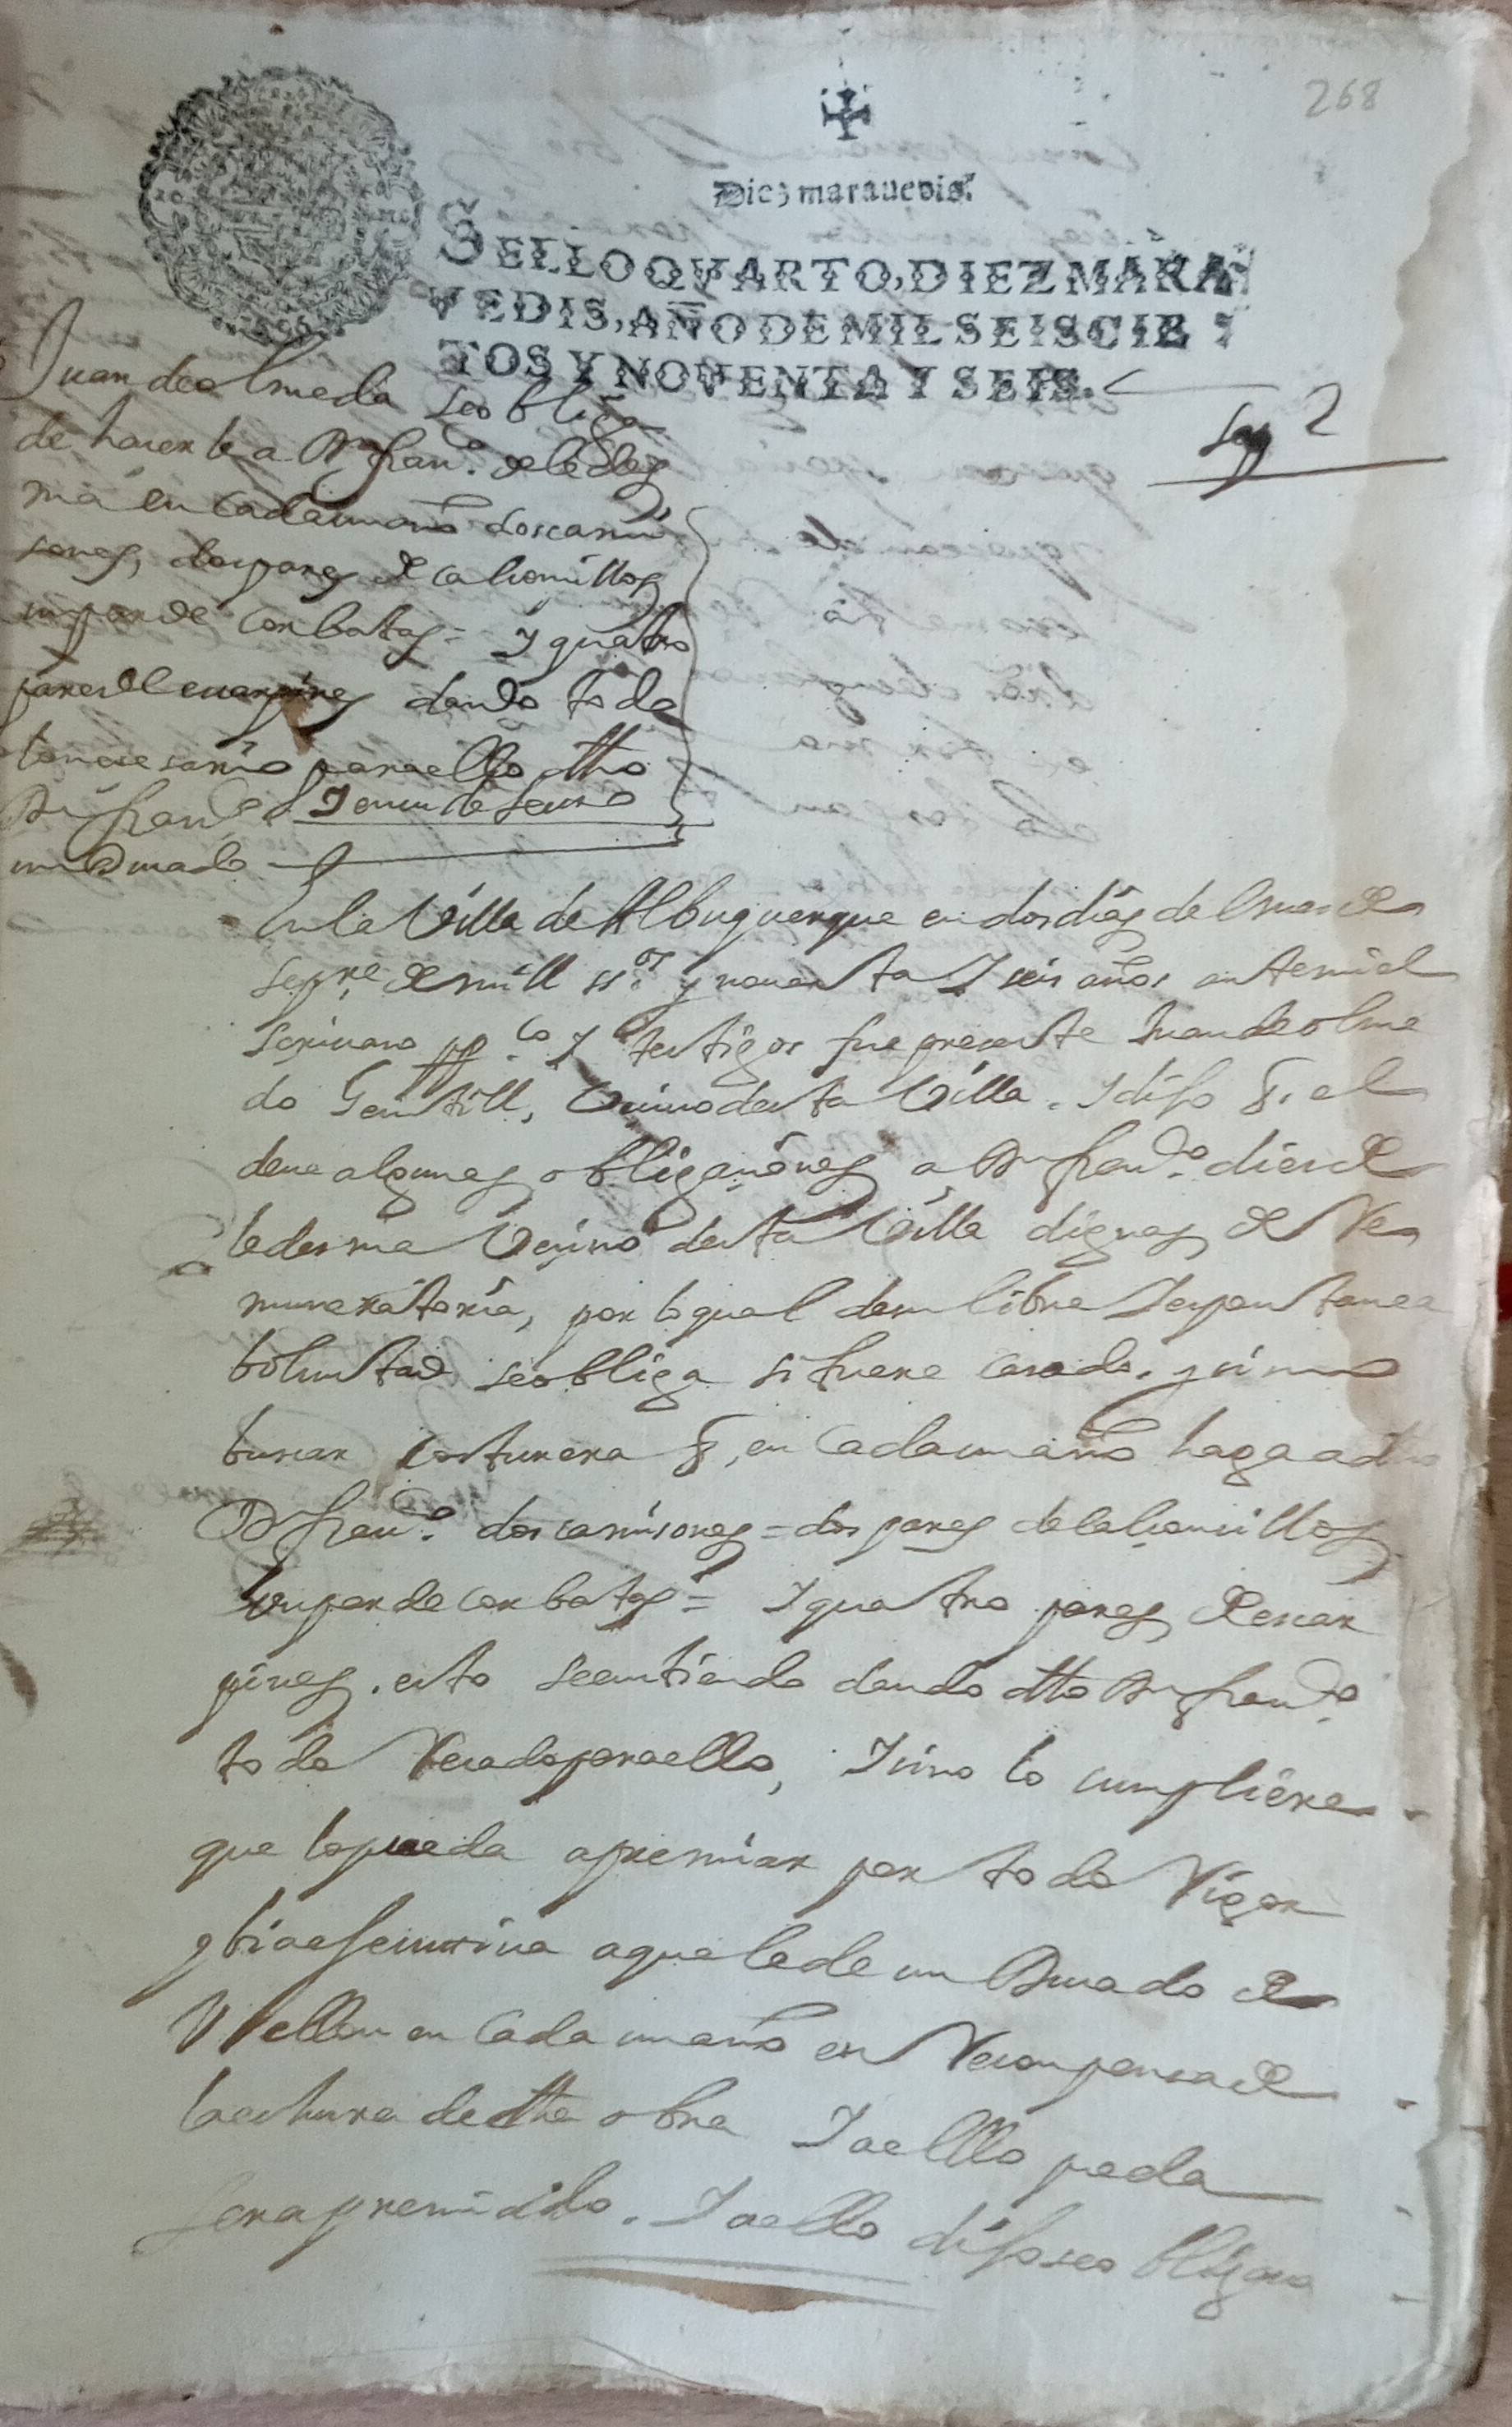 268
Diez marauedis.
SELLO QVARTO, DIEZ MARA
VEDIS, AÑO DE MIL SEISCIE
TOS Y NOVENTA Y SEIS.
Sepe 2
Juan de olmeda se obliga
de hacerle a Dn franco de ledes
ma en cada un año dos cami
sones, dos pares de calsonsillos
un par de corbatas = Y quatro
pares de escarpines dando todo
lo nesesario para ello dho
Dn franco Y en su defecto
un Ducado
En la Villa de Alburquerque en dos dias del mes de
sepre de mill ssos y nouenta Y seis años ante mi el
scriuano ppco y testigos fue presente Juan de olme
do Gentill, Vecino desta Villa. Y dijo q. el
deue algunas obligaciones a Dn franco dies de
ledesma Vecino desta Villa dignas de Re
muneratoria, por lo qual de su libre Y espontanea
boluntad se obliga si fuere casado, y si no
buscar costurera q, en cada un año haga a dho
Dn franco dos camisones = dos pares de calsonsillos
un par de corbatas = Y quatro pares de escar
pines. esto se entiende dando dho Dn franco
todo Recado para ello, Y si no lo cumpliere
que lo pueda apremiar por todo Rigor
y bia executiua a que le de un Ducado de
Vellon en cada un año en Recompensa de
la echura de dha obra Y a ello pueda
ser apremiado. Y a ello dijo se obligaua